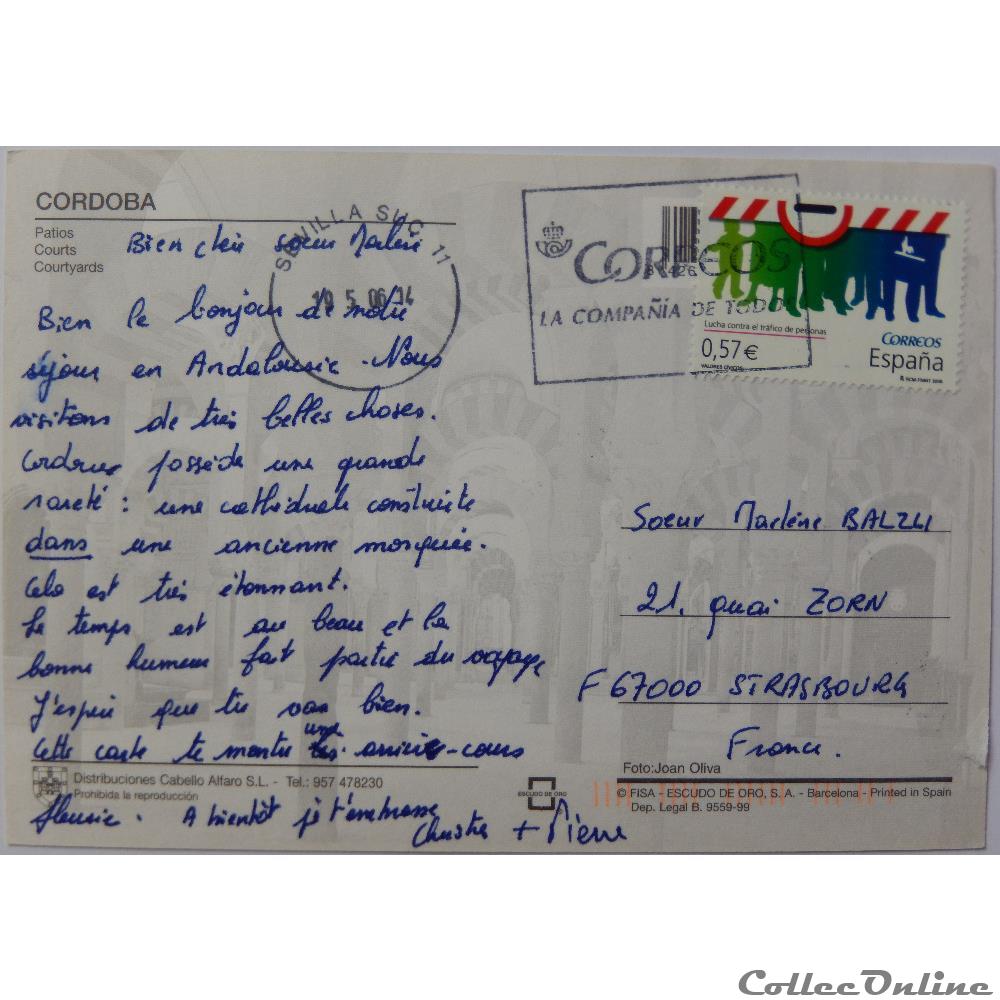 CORDOBA
Patios
Courts
Courtyards
SEVILLA SUC 11
19 5 06 14
CORREOS
LA COMPAÑIA DE TODOS
8 426
Lucha contra el tráfico de personas
CORREOS
0,57 €
España
VALORES CÍVICOS
Bien chère soeur Marlène
Bien le bonjour de notre
séjour en Andalousie. Nous
visitons de très belles choses.
Cordoue possède une grande
rareté : une cathédrale construite
dans une ancienne mosquée.
Cela est très étonnant.
Le temps est au beau et la
bonne humeur fait partie du voyage
J'espère que tu vas bien.
Cette carte te montre une arrière-cours
fleurie. A bientôt je t'embrasse
+ Pierre
Soeur Marlène BALZLI
21, quai ZORN
F 67000 STRASBOURG
France.
Foto:Joan Oliva
Distribuciones Cabello Alfaro S.L. - Tel.: 957 478230
Prohibida la reproducción
ESCUDO DE ORO
© FISA - ESCUDO DE ORO, S. A. - Barcelona - Printed in Spain
Dep. Legal B. 9559-99
CollecOnline